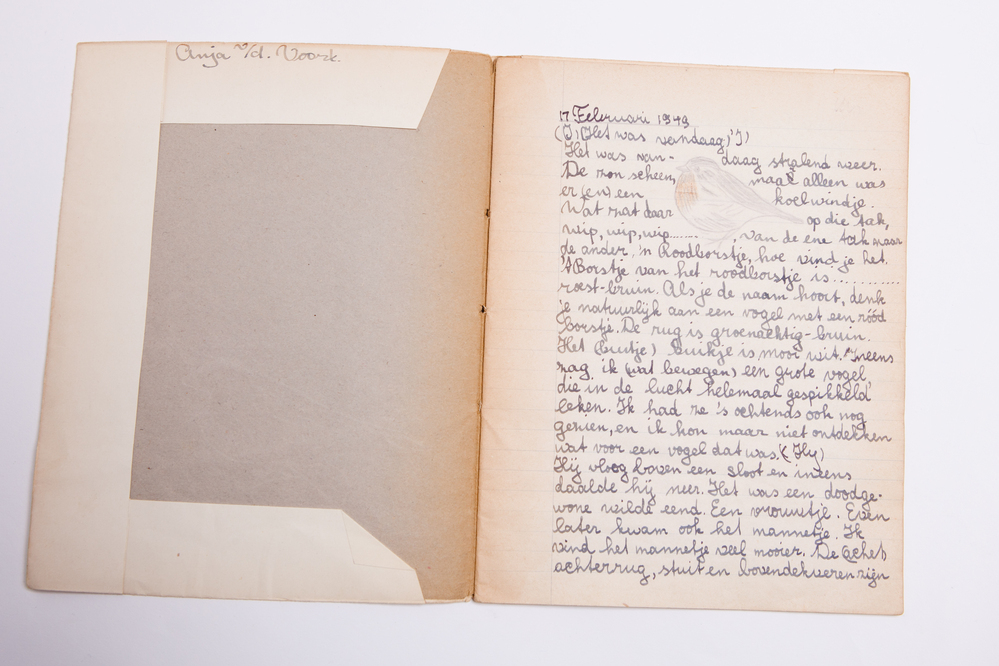 Anja v/d. Voork.
17 Februari 1949
(I) (Het was vandaag)'I)
Het was van- daag stralend weer.
De zon scheen, maar alleen was
er (en) een koel windje.
Wat zat daar op die tak,
wip, wip, wip........, van de ene tak naar
de ander, 'n Roodborstje, hoe vind je het.
't Borstje van het roodborstje is............
roest-bruin. Als je de naam hoort, denk
je natuurlijk aan een vogel met een róód
borstje. De rug is groenachtig-bruin.
Het (buutje) buikje is mooi wit. Ineens
zag ik (wat bewegen) een grote vogel,
die in de lucht helemaal gespikkeld
leken. Ik had ze 's ochtends ook nog
gezien, en ik kon maar niet ontdekken
wat voor een vogel dat was. (Hy)
Hij vloog boven een sloot en ineens
daalde hij neer. Het was een doodge-
wone wilde eend. Een vrouwtje. Even
later kwam ook het mannetje. Ik
vind het mannetje veel mooier. De (achet)
achterrug, stuit en bovendekveren zijn